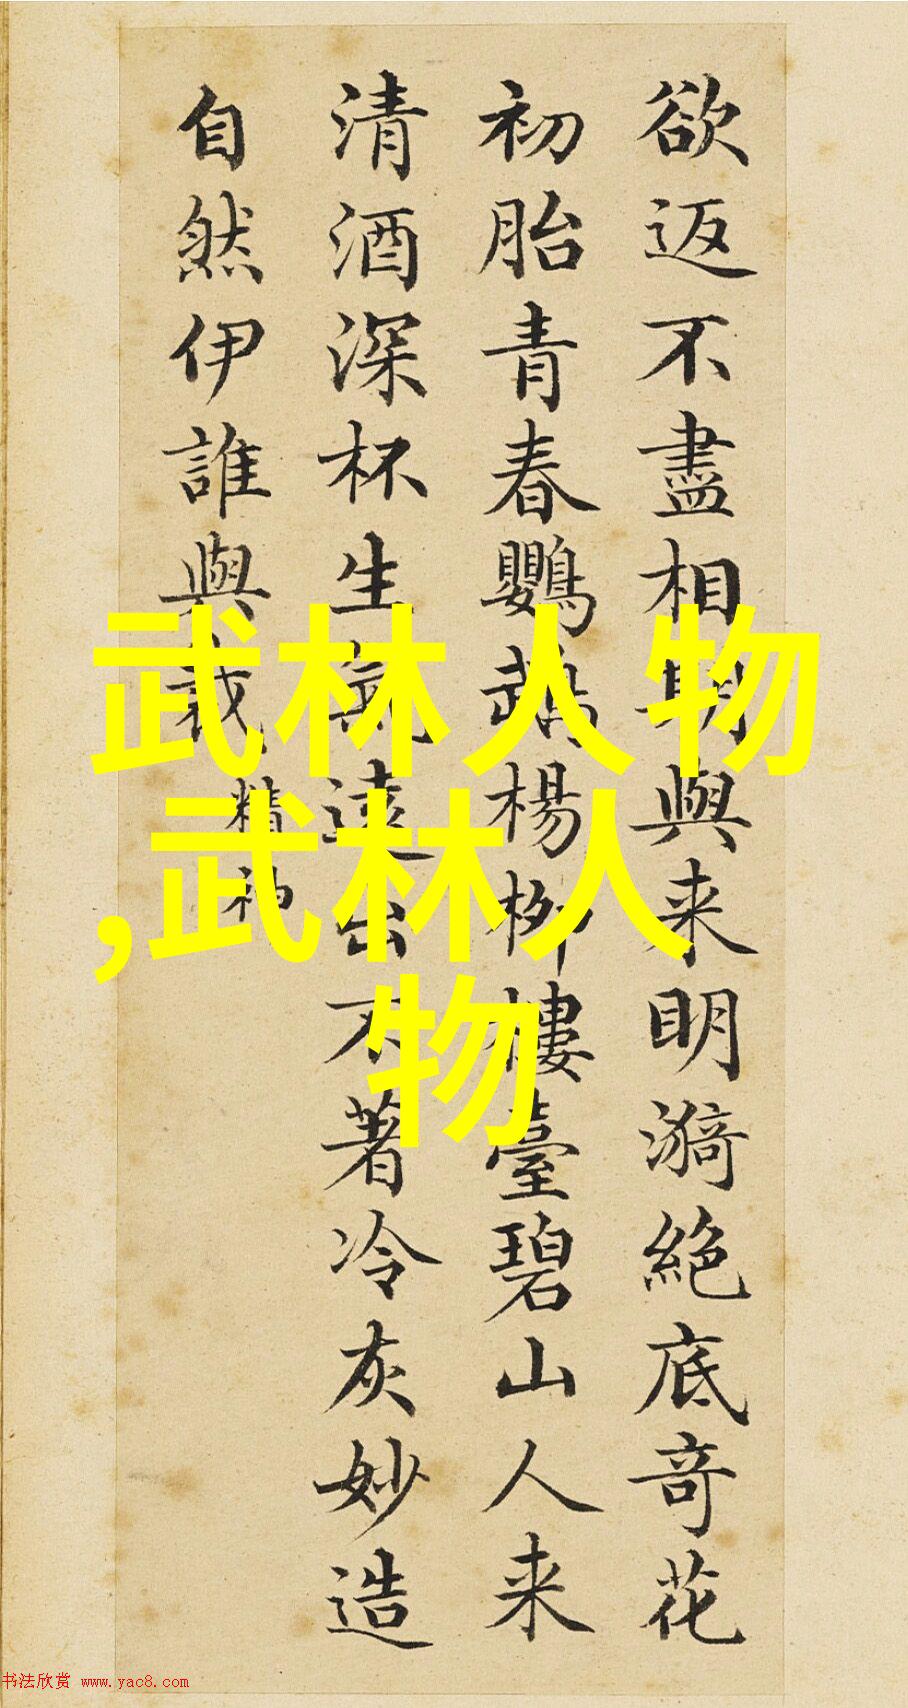 欲返不盡相期與来明漪絶底奇花
初胎青春鸚鵡楊柳樓臺碧山人来
清酒深杯生氣遠出不著冷灰妙造
自然伊誰與裁
精神
武林人物
,武林人
物
书法欣赏 www.yac8.com